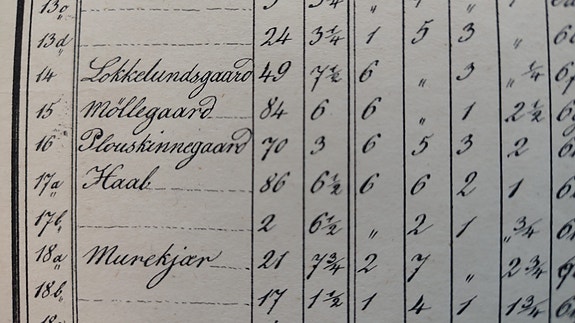 13d 24 3¼ 1 5 3 "
14 Lokkelundsgaard 49 7½ 6 " 3 " ¼
15 Møllegaard 84 6 6 " 1 2½
16 Plouskinnegaard 70 3 6 5 3 2
17a Haab 86 6½ 6 6 2 1
17b 2 6½ " 2 1 " ¾
18a Murekjær 21 7¾ 2 7 " 2¾
18b 17 1½ 1 4 1 1¾